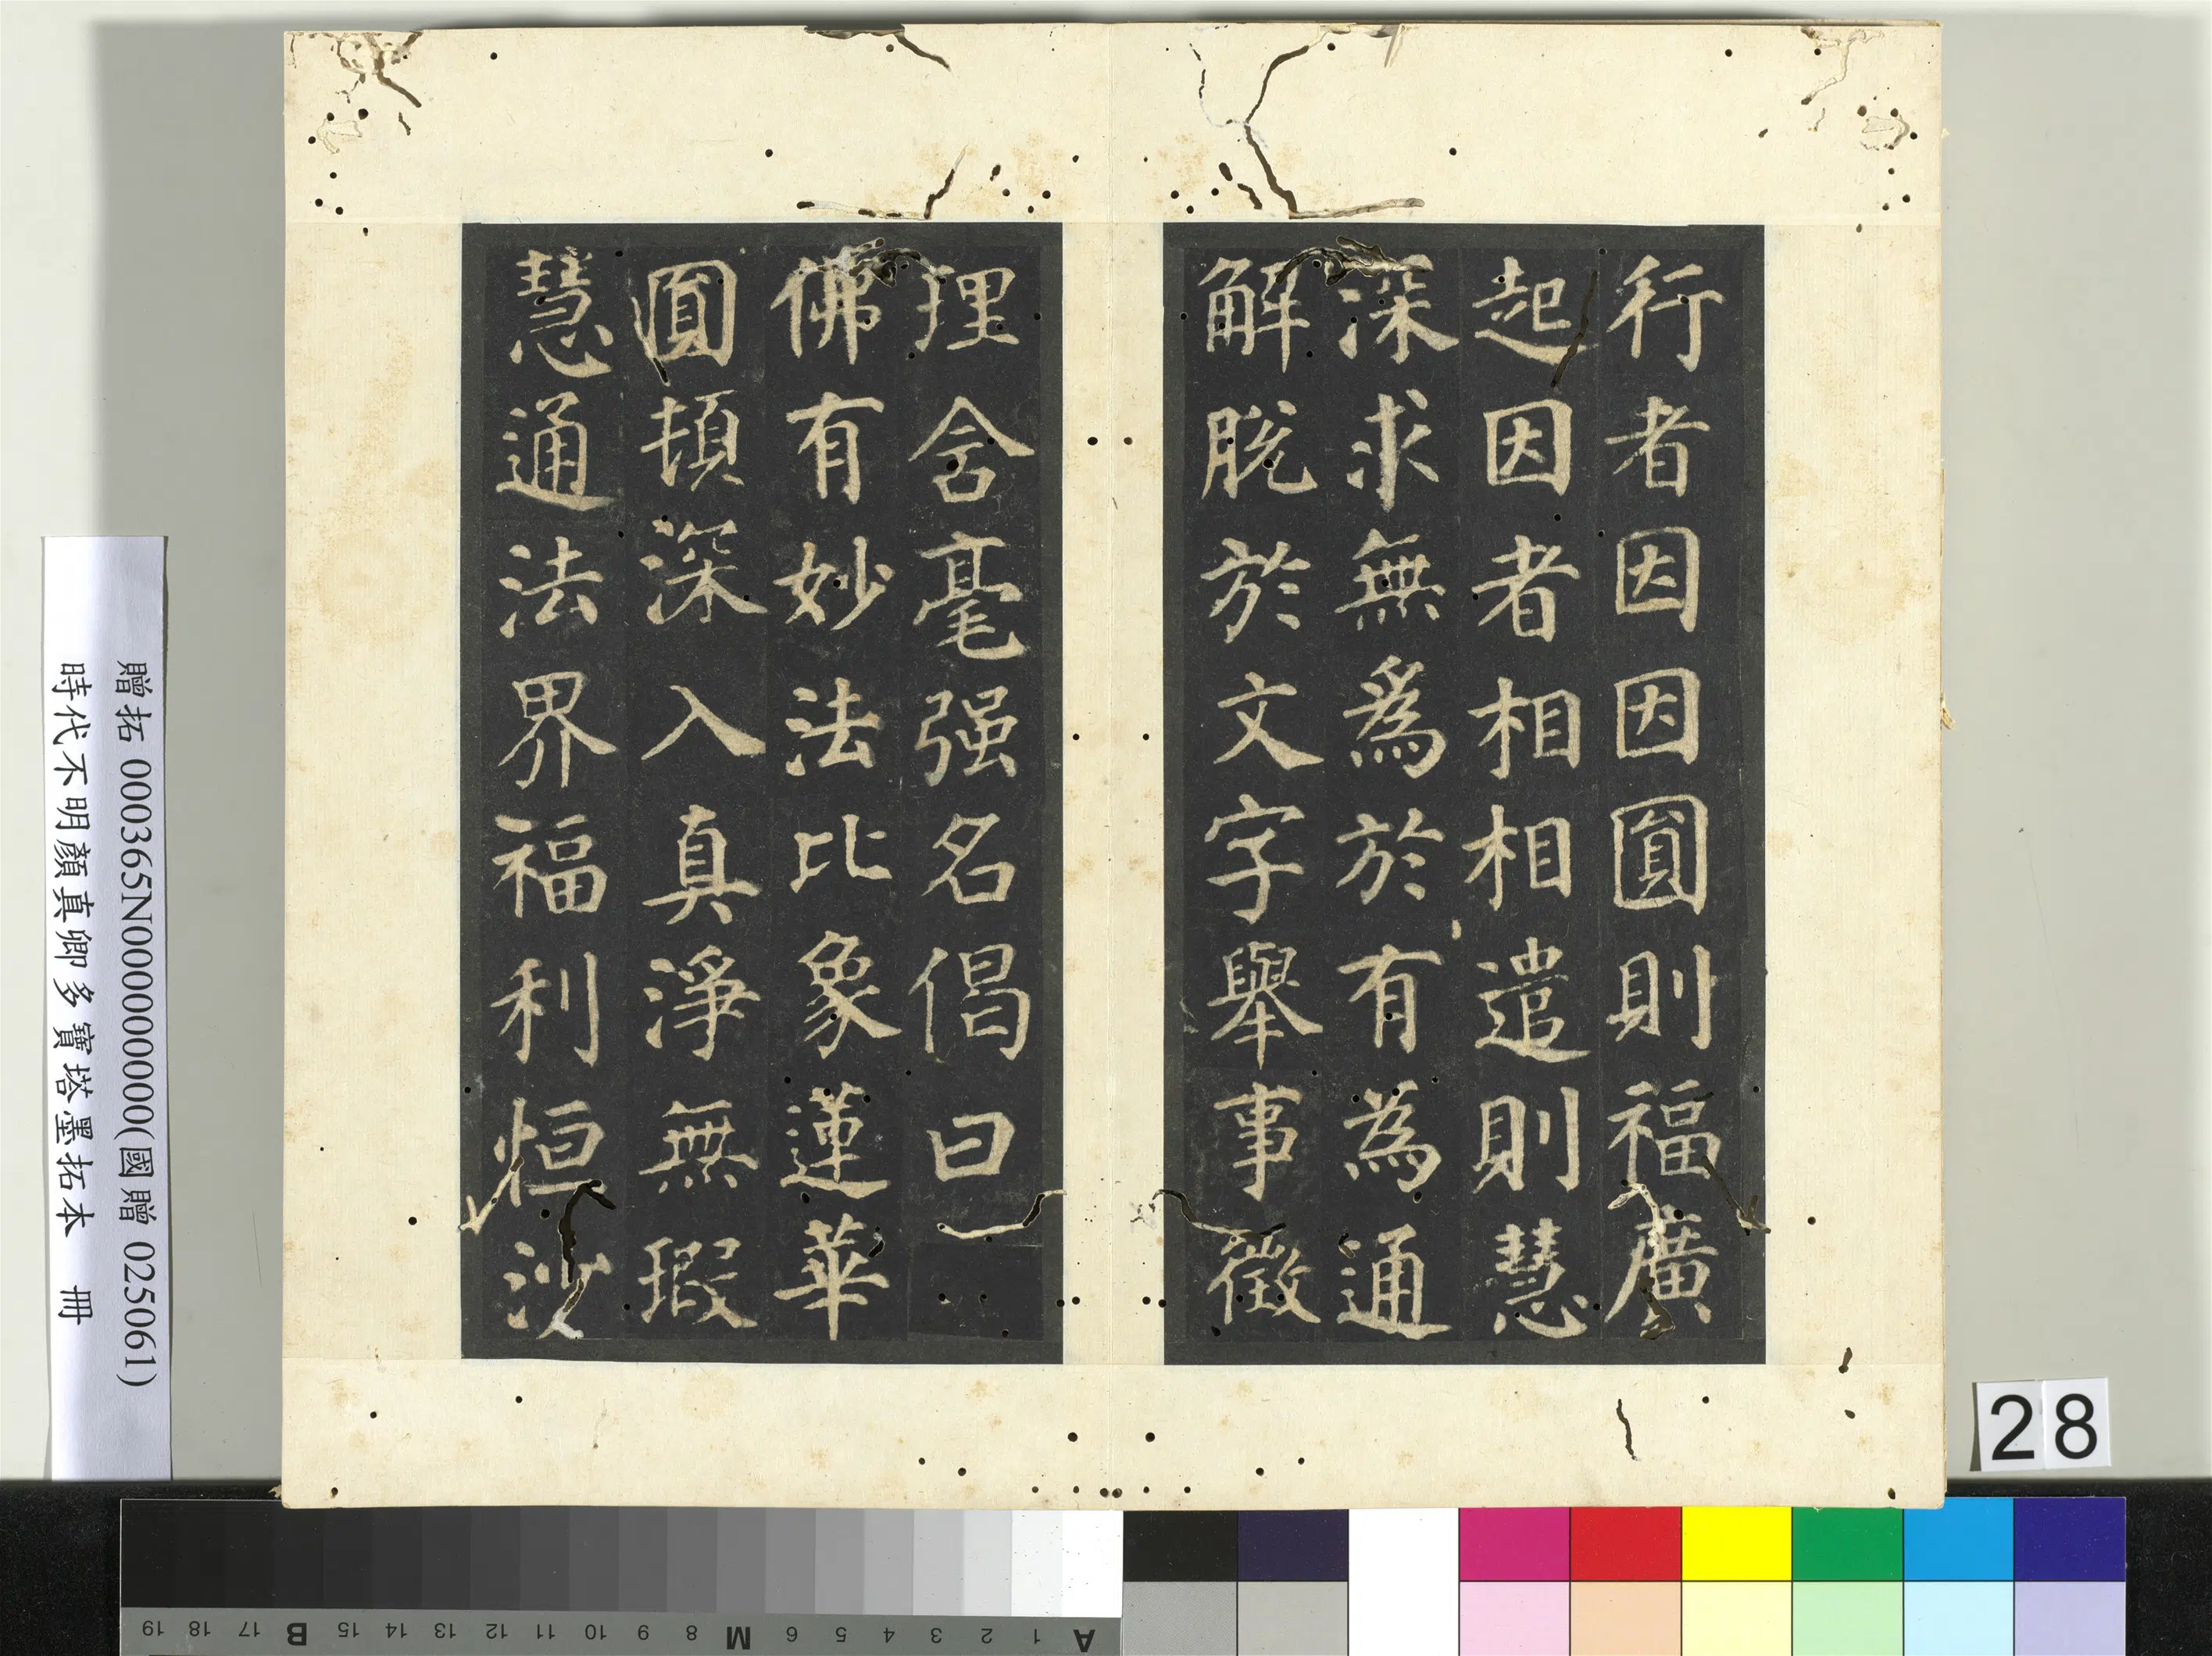 行者因因圓則福廣
起因者相相遣則慧
深求無為於有為通
解脫於文字舉事徵
理含毫强名偈曰
佛有妙法比象蓮華
圓頓深入真淨無瑕
慧通法界福利恒沙
贈拓 000365N000000000(國贈 025061)
時代不明顏真卿多寶塔墨拓本 冊
28
A 1 2 3 4 5 6 M 8 9 10 11 12 13 14 15 B 17 18 19